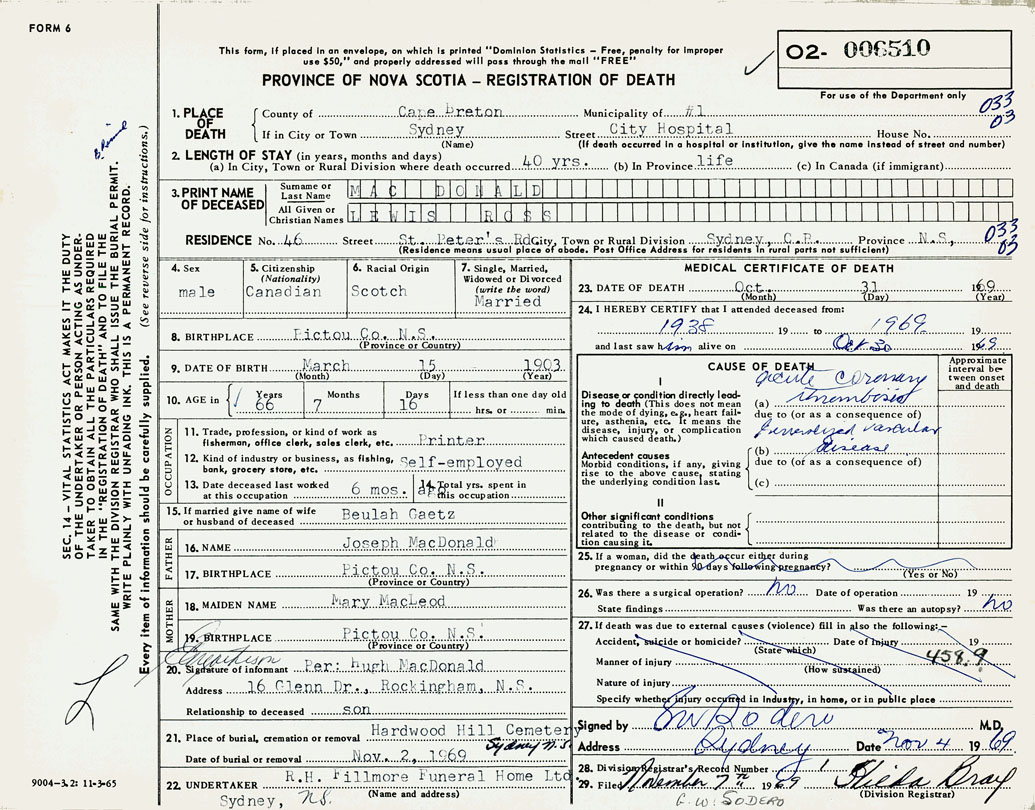 FORM 6
This form, if placed in an envelope, on which is printed "Dominion Statistics – Free, penalty for improper
use $50," and properly addressed will pass through the mail "FREE"
PROVINCE OF NOVA SCOTIA – REGISTRATION OF DEATH
02- 006510
For use of the Department only
033
03
1. PLACE OF DEATH
County of Cape Breton Municipality of #1
If in City or Town Sydney Street City Hospital House No.
(Name) (If death occurred in a hospital or institution, give the name instead of street and number)
2. LENGTH OF STAY (in years, months and days)
(a) In City, Town or Rural Division where death occurred 40 yrs. (b) In Province life (c) In Canada (if immigrant)
3. PRINT NAME OF DECEASED
Surname or Last Name MAC DONALD
All Given or Christian Names LEWIS ROSS
RESIDENCE No. 46 Street St. Peter's Rd City, Town or Rural Division Sydney, C.B. Province N.S.,
(Residence means usual place of abode. Post Office Address for residents in rural parts not sufficient)
033
03
4. Sex male
5. Citizenship (Nationality) Canadian
6. Racial Origin Scotch
7. Single, Married, Widowed or Divorced (write the word) Married
8. BIRTHPLACE Pictou Co. N.S.
(Province or Country)
9. DATE OF BIRTH March 15 1903
(Month) (Day) (Year)
10. AGE in Years 66 Months 7 Days 16 If less than one day old hrs. or min.
OCCUPATION
11. Trade, profession, or kind of work as fisherman, office clerk, sales clerk, etc. Printer
12. Kind of industry or business, as fishing, bank, grocery store, etc. Self-employed
13. Date deceased last worked at this occupation 6 mos. ago
14. Total yrs. spent in this occupation
15. If married give name of wife or husband of deceased Beulah Gaetz
FATHER
16. NAME Joseph MacDonald
17. BIRTHPLACE Pictou Co. N.S.
(Province or Country)
MOTHER
18. MAIDEN NAME Mary MacLeod
19. BIRTHPLACE Pictou Co. N.S.
(Province or Country)
20. Signature of informant Per: Hugh MacDonald
Address 16 Glenn Dr., Rockingham, N.S.
Relationship to deceased son
21. Place of burial, cremation or removal Hardwood Hill Cemetery
Sydney N.S.
Date of burial or removal Nov. 2, 1969
22. UNDERTAKER R.H. Fillmore Funeral Home Ltd
Sydney, N.S. (Name and address)
MEDICAL CERTIFICATE OF DEATH
23. DATE OF DEATH Oct. 31 1969
(Month) (Day) (Year)
24. I HEREBY CERTIFY that I attended deceased from:
1938 19 to 1969 19
and last saw him alive on Oct 30 1969
CAUSE OF DEATH
Approximate interval between onset and death
I
Disease or condition directly leading to death (This does not mean the mode of dying, e.g., heart failure, asthenia, etc. It means the disease, injury, or complication which caused death.)
(a) acute coronary thrombosis
due to (or as a consequence of)
Antecedent causes
Morbid conditions, if any, giving rise to the above cause, stating the underlying condition last.
(b) generalized vascular disease
due to (or as a consequence of)
(c)
II
Other significant conditions contributing to the death, but not related to the disease or condition causing it.
25. If a woman, did the death occur either during
pregnancy or within 90 days following pregnancy?
(Yes or No)
26. Was there a surgical operation? no Date of operation 19
State findings Was there an autopsy? no
27. If death was due to external causes (violence) fill in also the following:–
Accident, suicide or homicide? Date of Injury 19
(State which)
458.9
Manner of injury
(How sustained)
Nature of injury
Specify whether injury occurred in Industry, in home, or in public place
Signed by GW Sodero M.D.
Address Sydney Date Nov 4 1969
28. Division Registrar's Record Number 1
29. Filed November 7th 1969 Hilda Bray
(Division Registrar)
G. W. SODERO
SEC. 14 – VITAL STATISTICS ACT MAKES IT THE DUTY
OF THE UNDERTAKER OR PERSON ACTING AS UNDER-
TAKER TO OBTAIN ALL THE PARTICULARS REQUIRED
IN THE "REGISTRATION OF DEATH" AND TO FILE THE
SAME WITH THE DIVISION REGISTRAR WHO SHALL ISSUE THE BURIAL PERMIT.
WRITE PLAINLY WITH UNFADING INK. THIS IS A PERMANENT RECORD.
Every item of information should be carefully supplied. (See reverse side for instructions.)
9004-3.2: 11-3-65